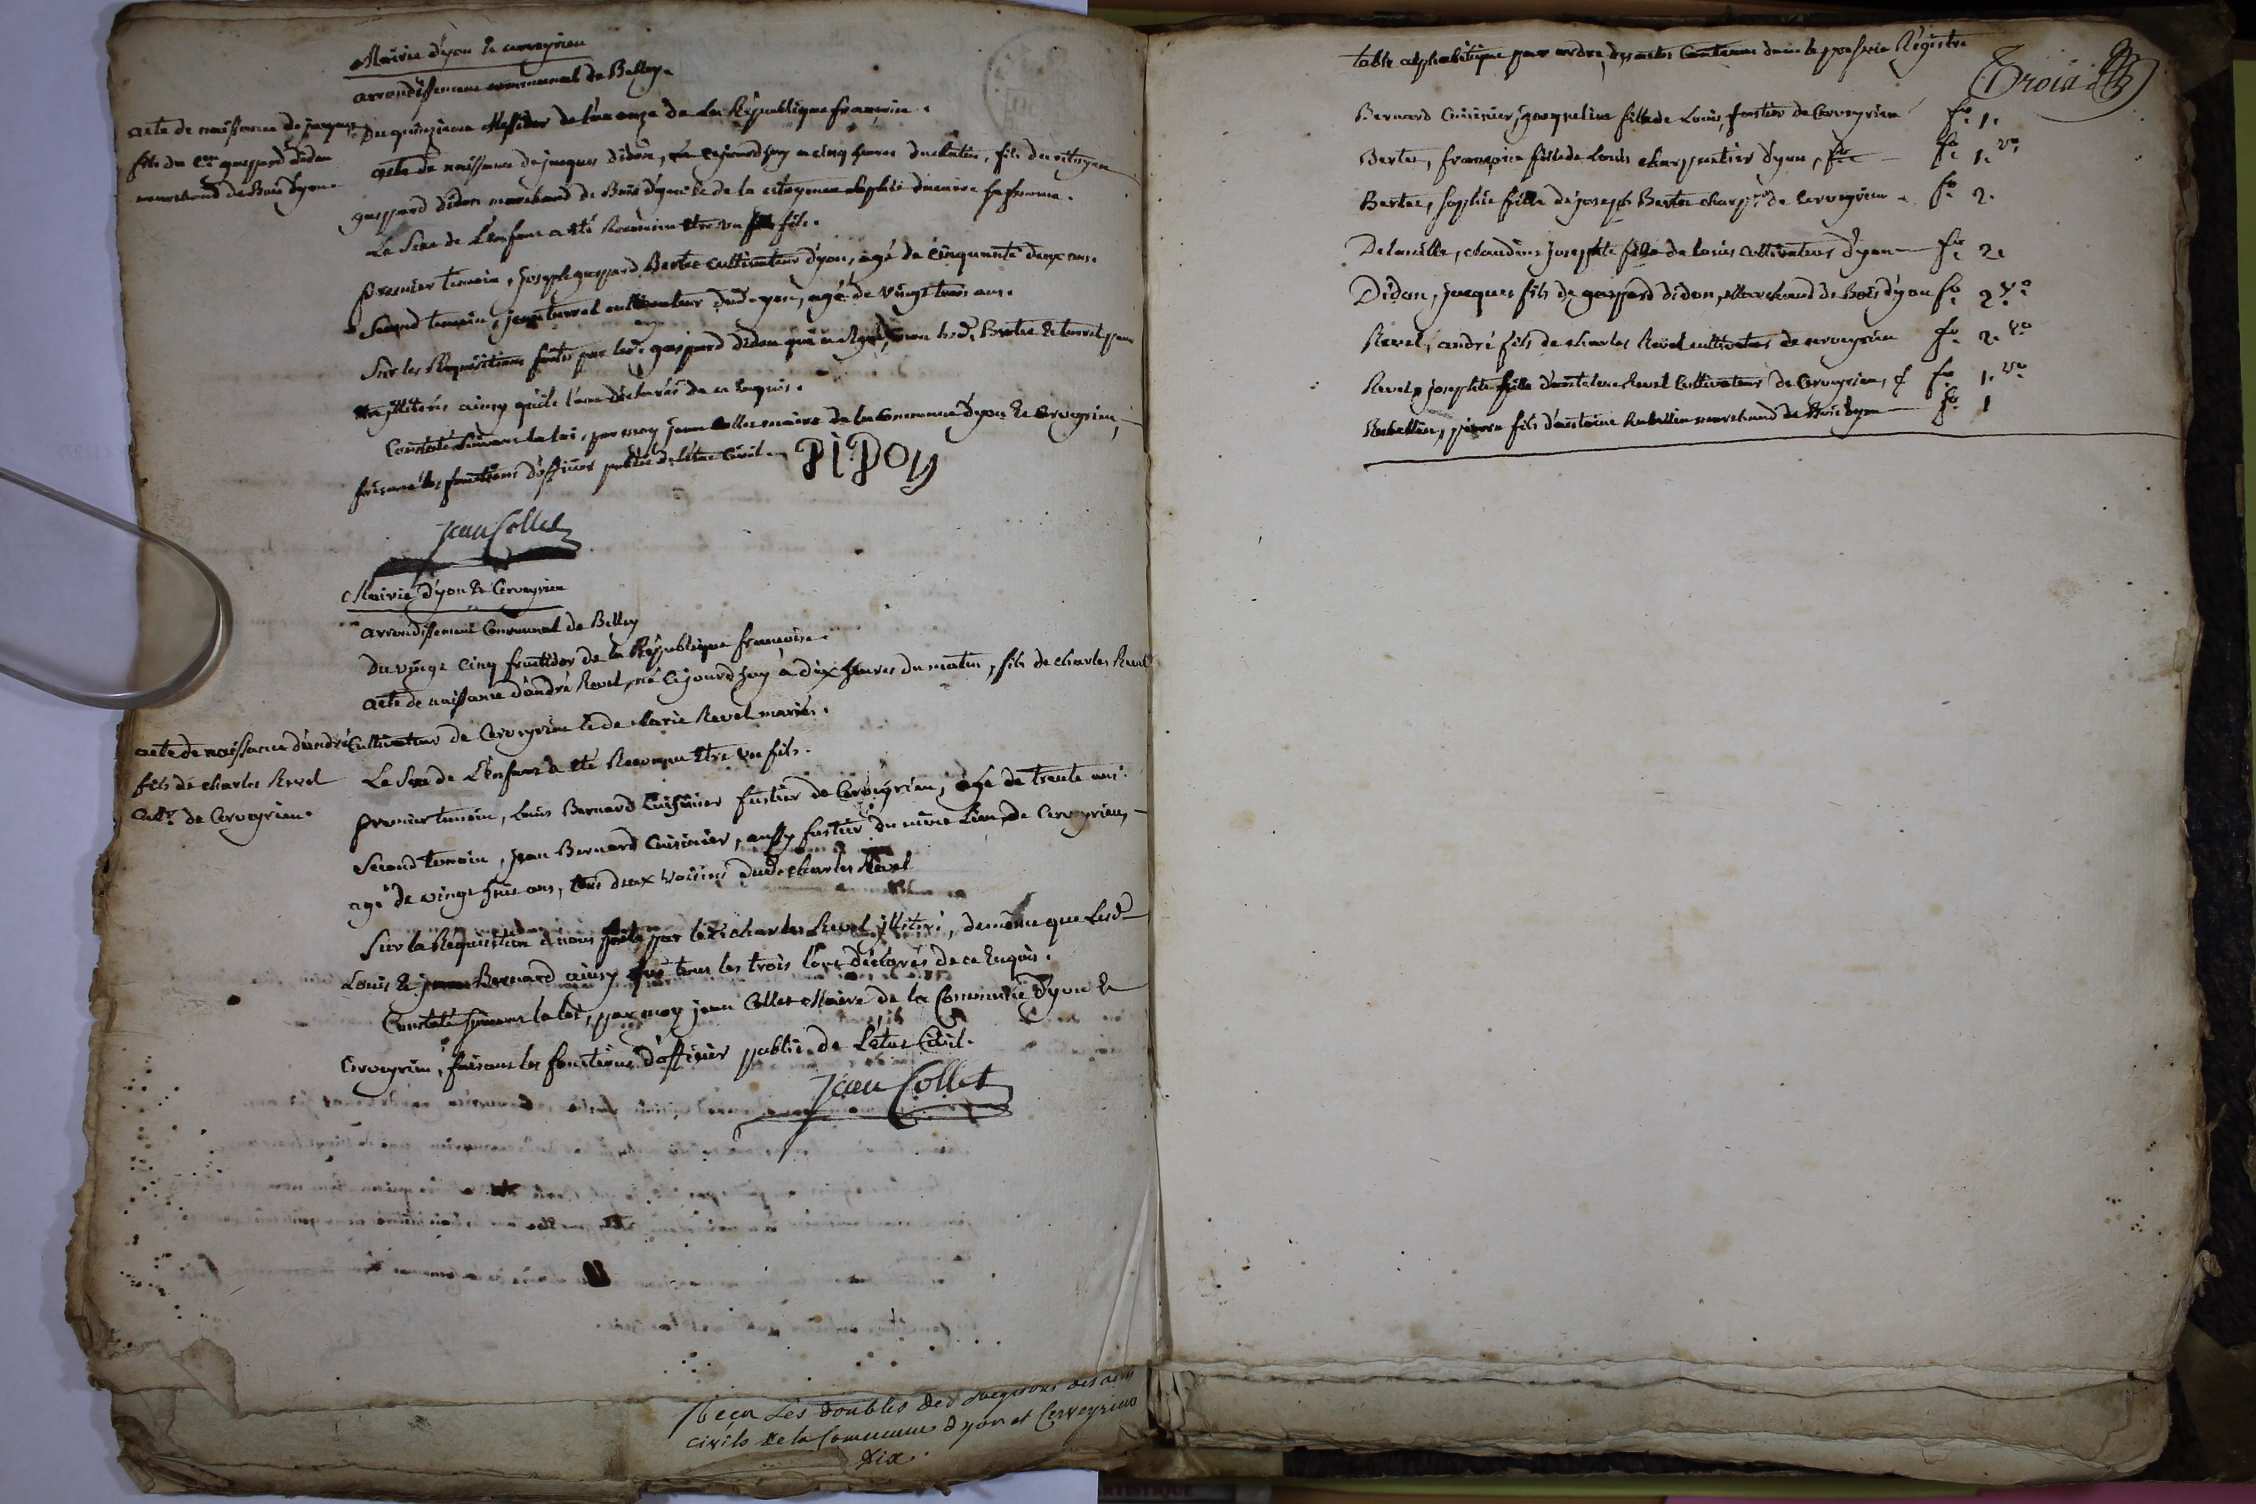 Mairie d'yon & cerveyrieu
arrondissement communal de Belley.
acte de naissance de jacques
fils du c.en gaspard didon
marchand de Bois d'yon.
Du quinzieme Messidor de l'an onze de La République françoise.
acte de naissance de jacques didon, né cejourd'huy a cinq heures du Matin, fils du citoyen
gaspard didon marchand de Bois d'yon & de la citoyenne sa femme.
Le Sexe de L'enfant a été Reconnu être un fils.
premier temoin, joseph gaspard Bertet cultivateur d'yon, agé de Cinquante deux ans.
Second temoin, jean turrel cultivateur dud. yon, agé de vingt trois ans.
Sur les Requisitions faites par led. gaspard didon qui a signé, non lesd. Bertet & turrel pour
être illiterés ainsy qu'ils l'ont déclarés de ce Enquis.
Constaté suivant la loi, par moy jean Collet maire de la Commune d'yon & Cerveyrieu,
faisant les fonctions d'officier public de l'état Civil.
DIDON
Jean Collet
Mairie d'yon & Cerveyrieu
arrondissement Communal de Belley
Du vingt cinq fructidor de la République françoise.
acte de naissance d'andré Revel, né cejourd'huy a dix heures du matin, fils de charles Revel
acte de naissance d'andré
fils de charles Revel
cult.r de Cerveyrieu.
Cultivateur de Cerveyrieu & de Marie Revel mariés.
Le Sexe de L'enfant a été Reconnu être un fils.
premier temoin, Louis Bernard Cuisinier fustier de Cerveyrieu, agé de trente ans.
Second temoin, jean Bernard Cuisinier, aussy fustier du même Lieu de Cerveyrieu,
agé de vingt huit ans, tous deux voisins dud. charles Revel
Sur la Réquisition à nous faite par led. charles Revel illiteré, de même que Lesd.
Louis & jean Bernard ainsy que tous les trois l'ont déclarés de ce Enquis.
Constaté suivant la loi, par moy jean Collet Maire de la Commune d'yon &
Cerveyrieu, faisant les fonctions d'officier public de L'état Civil.
Jean Collet
Reçu Les doubles des Registres des actes
civils de la Commune d yon et Cerveyrieu
dix.
table alphabétique par ordre, des actes Contenus dans le présent Régistre
Trois
Bernard Cuisinier, jacqueline fille de Louis, fustier de Cerveyrieu f.o 1.
Bertet, françoise fille de Louis charpentier d'yon, f.o 1. v.o
Bertet, sophie fille de joseph Bertet charp.r de Cerveyrieu. f.o 2.
Delaville, claudine josephte fille de Louis cultivateur d'yon f.o 2.
Didon, jacques fils de gaspard didon, Marchand de Bois d'yon f.o 2 v.o
Revel, andré fils de charles Revel cultivateur de cerveyrieu f.o 2. v.o
Revel, josephte fille d'anthelme Revel Cultivateur de Cerveyrieu, f.o 1. v.o
Rubellin, pierre fils d'antoine Rubellin marchand de Bois d'yon f.o 1